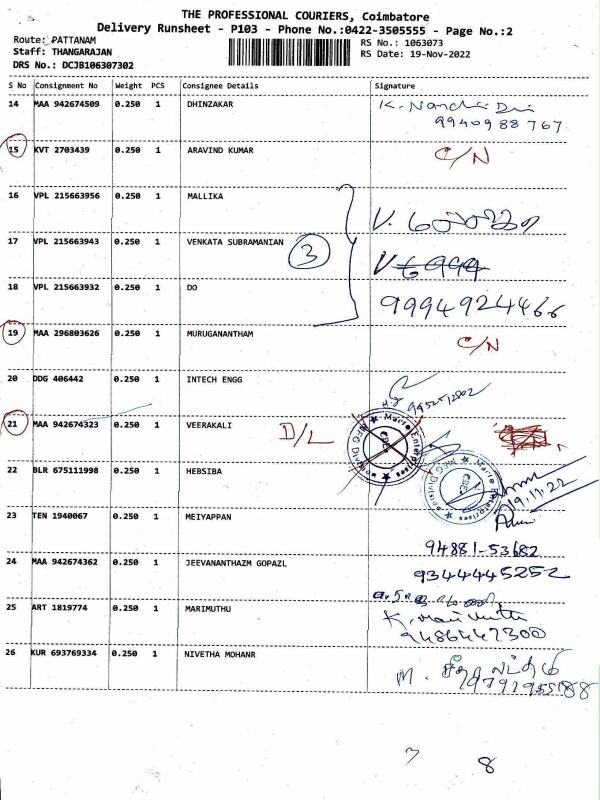 THE PROFESSIONAL COURIERS, Coimbatore
Delivery Runsheet - P103 - Phone No.:0422-3505555 - Page No.:2
Route: PATTANAM
RS No.: 1063073
Staff: THANGARAJAN
RS Date: 19-Nov-2022
DRS No.: DCJB106307302
S No Consignment No Weight PCS Consignee Details Signature
14 MAA 942674509 0.250 1 DHINZAKAR
9940988767
15 KVT 2703439 0.250 1 ARAVIND KUMAR C/N
16 VPL 215663956 0.250 1 MALLIKA
17 VPL 215663943 0.250 1 VENKATA SUBRAMANIAN 3
18 VPL 215663932 0.250 1 DO 9994924466
19 MAA 296803626 0.250 1 MURUGANANTHAM C/N
20 DDG 406442 0.250 1 INTECH ENGG
21 MAA 942674323 0.250 1 VEERAKALI D/L
22 BLR 675111998 0.250 1 HEBSIBA
19.11.22
23 TEN 1940067 0.250 1 MEIYAPPAN
94881-53682
24 MAA 942674362 0.250 1 JEEVANANTHAZM GOPAZL 9344445252
25 ART 1819774 0.250 1 MARIMUTHU
9486447300
26 KUR 693769334 0.250 1 NIVETHA MOHANR
8